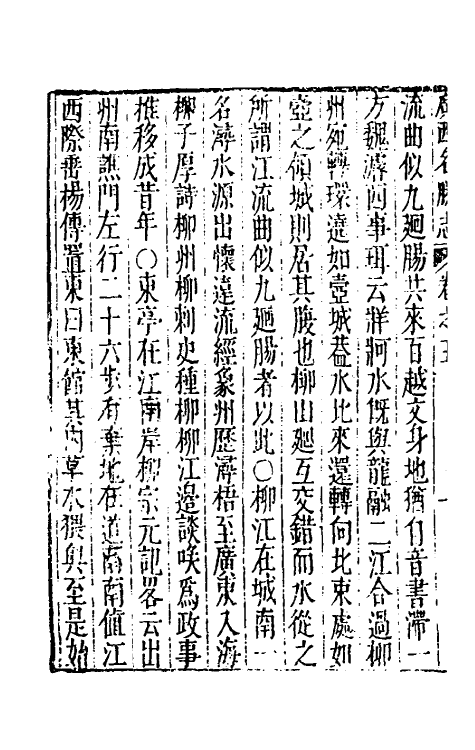 廣西名勝志 卷之五 一
流曲似九廻腸共來百越文身地猶自音書滯一
方魏濬西事珥云牂牁水旣與龍融二江合過柳
州宛轉環遶如壺城葢水北來還轉向北東處如
壺之領城則居其腹也柳山廻互交錯而水從之
所謂江流曲似九廻腸者以此〇柳江在城南一
名潯水源出懷遠流經象州歷潯梧至廣東入海
柳子厚詩柳州柳刺史種柳柳江邊談咲爲政事
推移成昔年〇東亭在江南岸柳宗元記畧云出
州南譙門左行二十六步有棄地在道南南值江
西際垂楊傳置東曰東館其內草木猥奧至是始